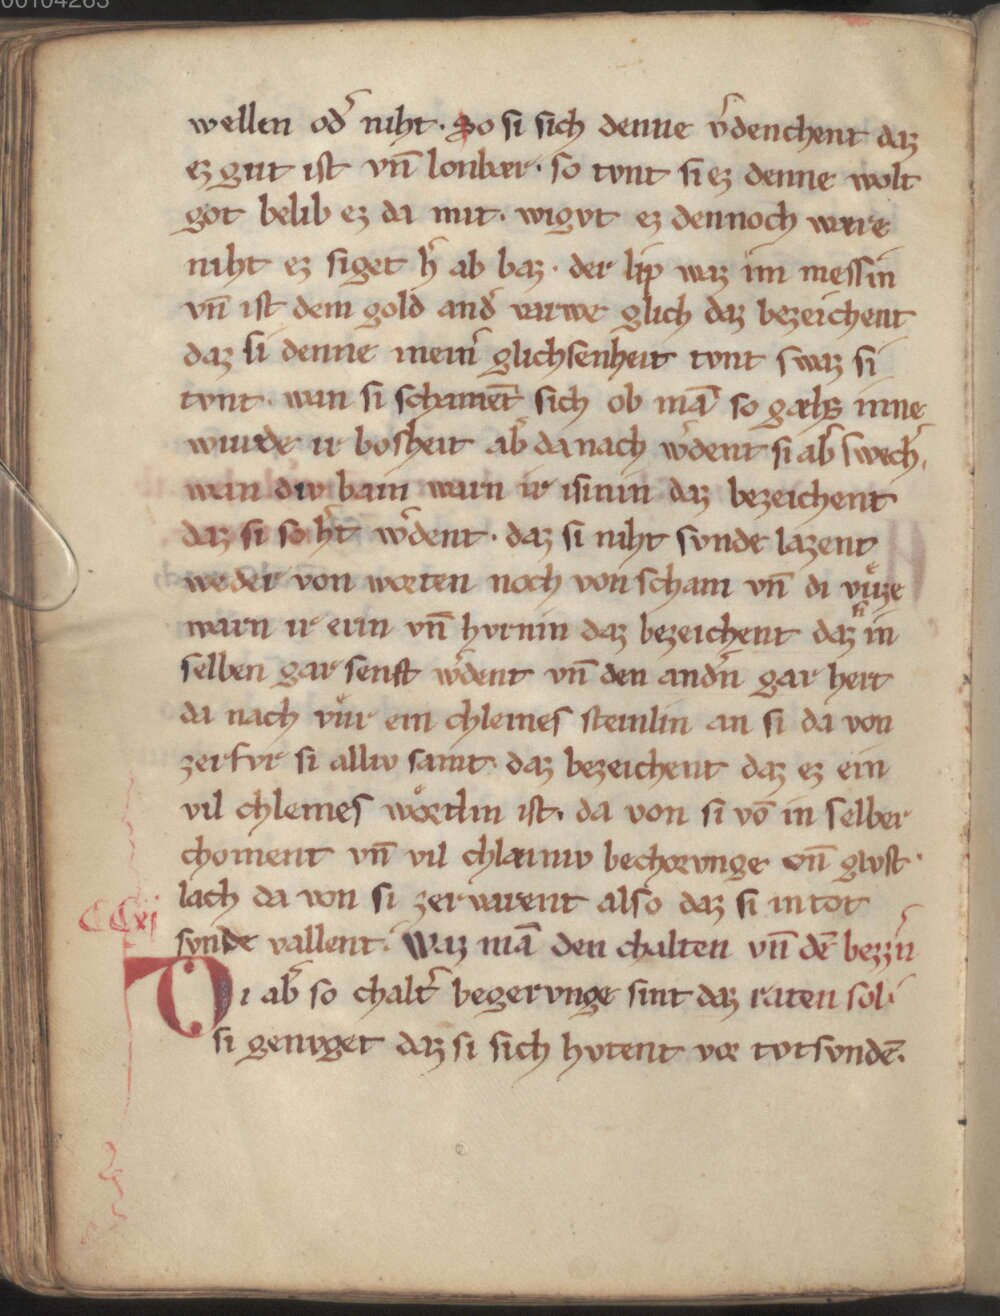 00104263
wellen od̾ niht. So si sich denne v̾denchent daz
ez gut ist vn̄ lonbær. so tvnt si ez denne wolt
got belib ez da mit. wigvt ez dennoch wære
niht ez siget h̾ ab baz. der lip waz im messin
vn̄ ist dem gold and̾ varwe glich daz bezeichent
daz si denne mein̾ glichsenheit tvnt swaz si
tvnt. wan si schament̄ sich ob mā so gæhs inne
wurde ir bosheit ab̾ danach w̾dent si ab̾ swech̾.
wan div bain warn ir isinin daz bezeichent
daz si so h̾t w̾dent. daz si niht svnde lazent
weder von worten noch von scham vn̄ di vuͤze
warn ir erin vn̄ hvrnin daz bezeichent daz si in
selben gar senft w̾dent vn̄ den and̾n gar hert
da nach vuͤr ein chleines steinlin an si da von
zerfvr si alliv samt. daz bezeichent daz ez ein
vil chleines woͤrtlin ist. da von si vō in selber
choment vn̄ vil chlainiv bechorvnge vn̄ glvst.
lach da von si zervarent also daz si in tot
CCxj
svnde vallent. Waz mā den chalten vn̄ dē bezz̾n
Di ab̾ so chalt̾ begervnge sint daz raten sol
si genvget daz si sich hvtent vor totsvndē.